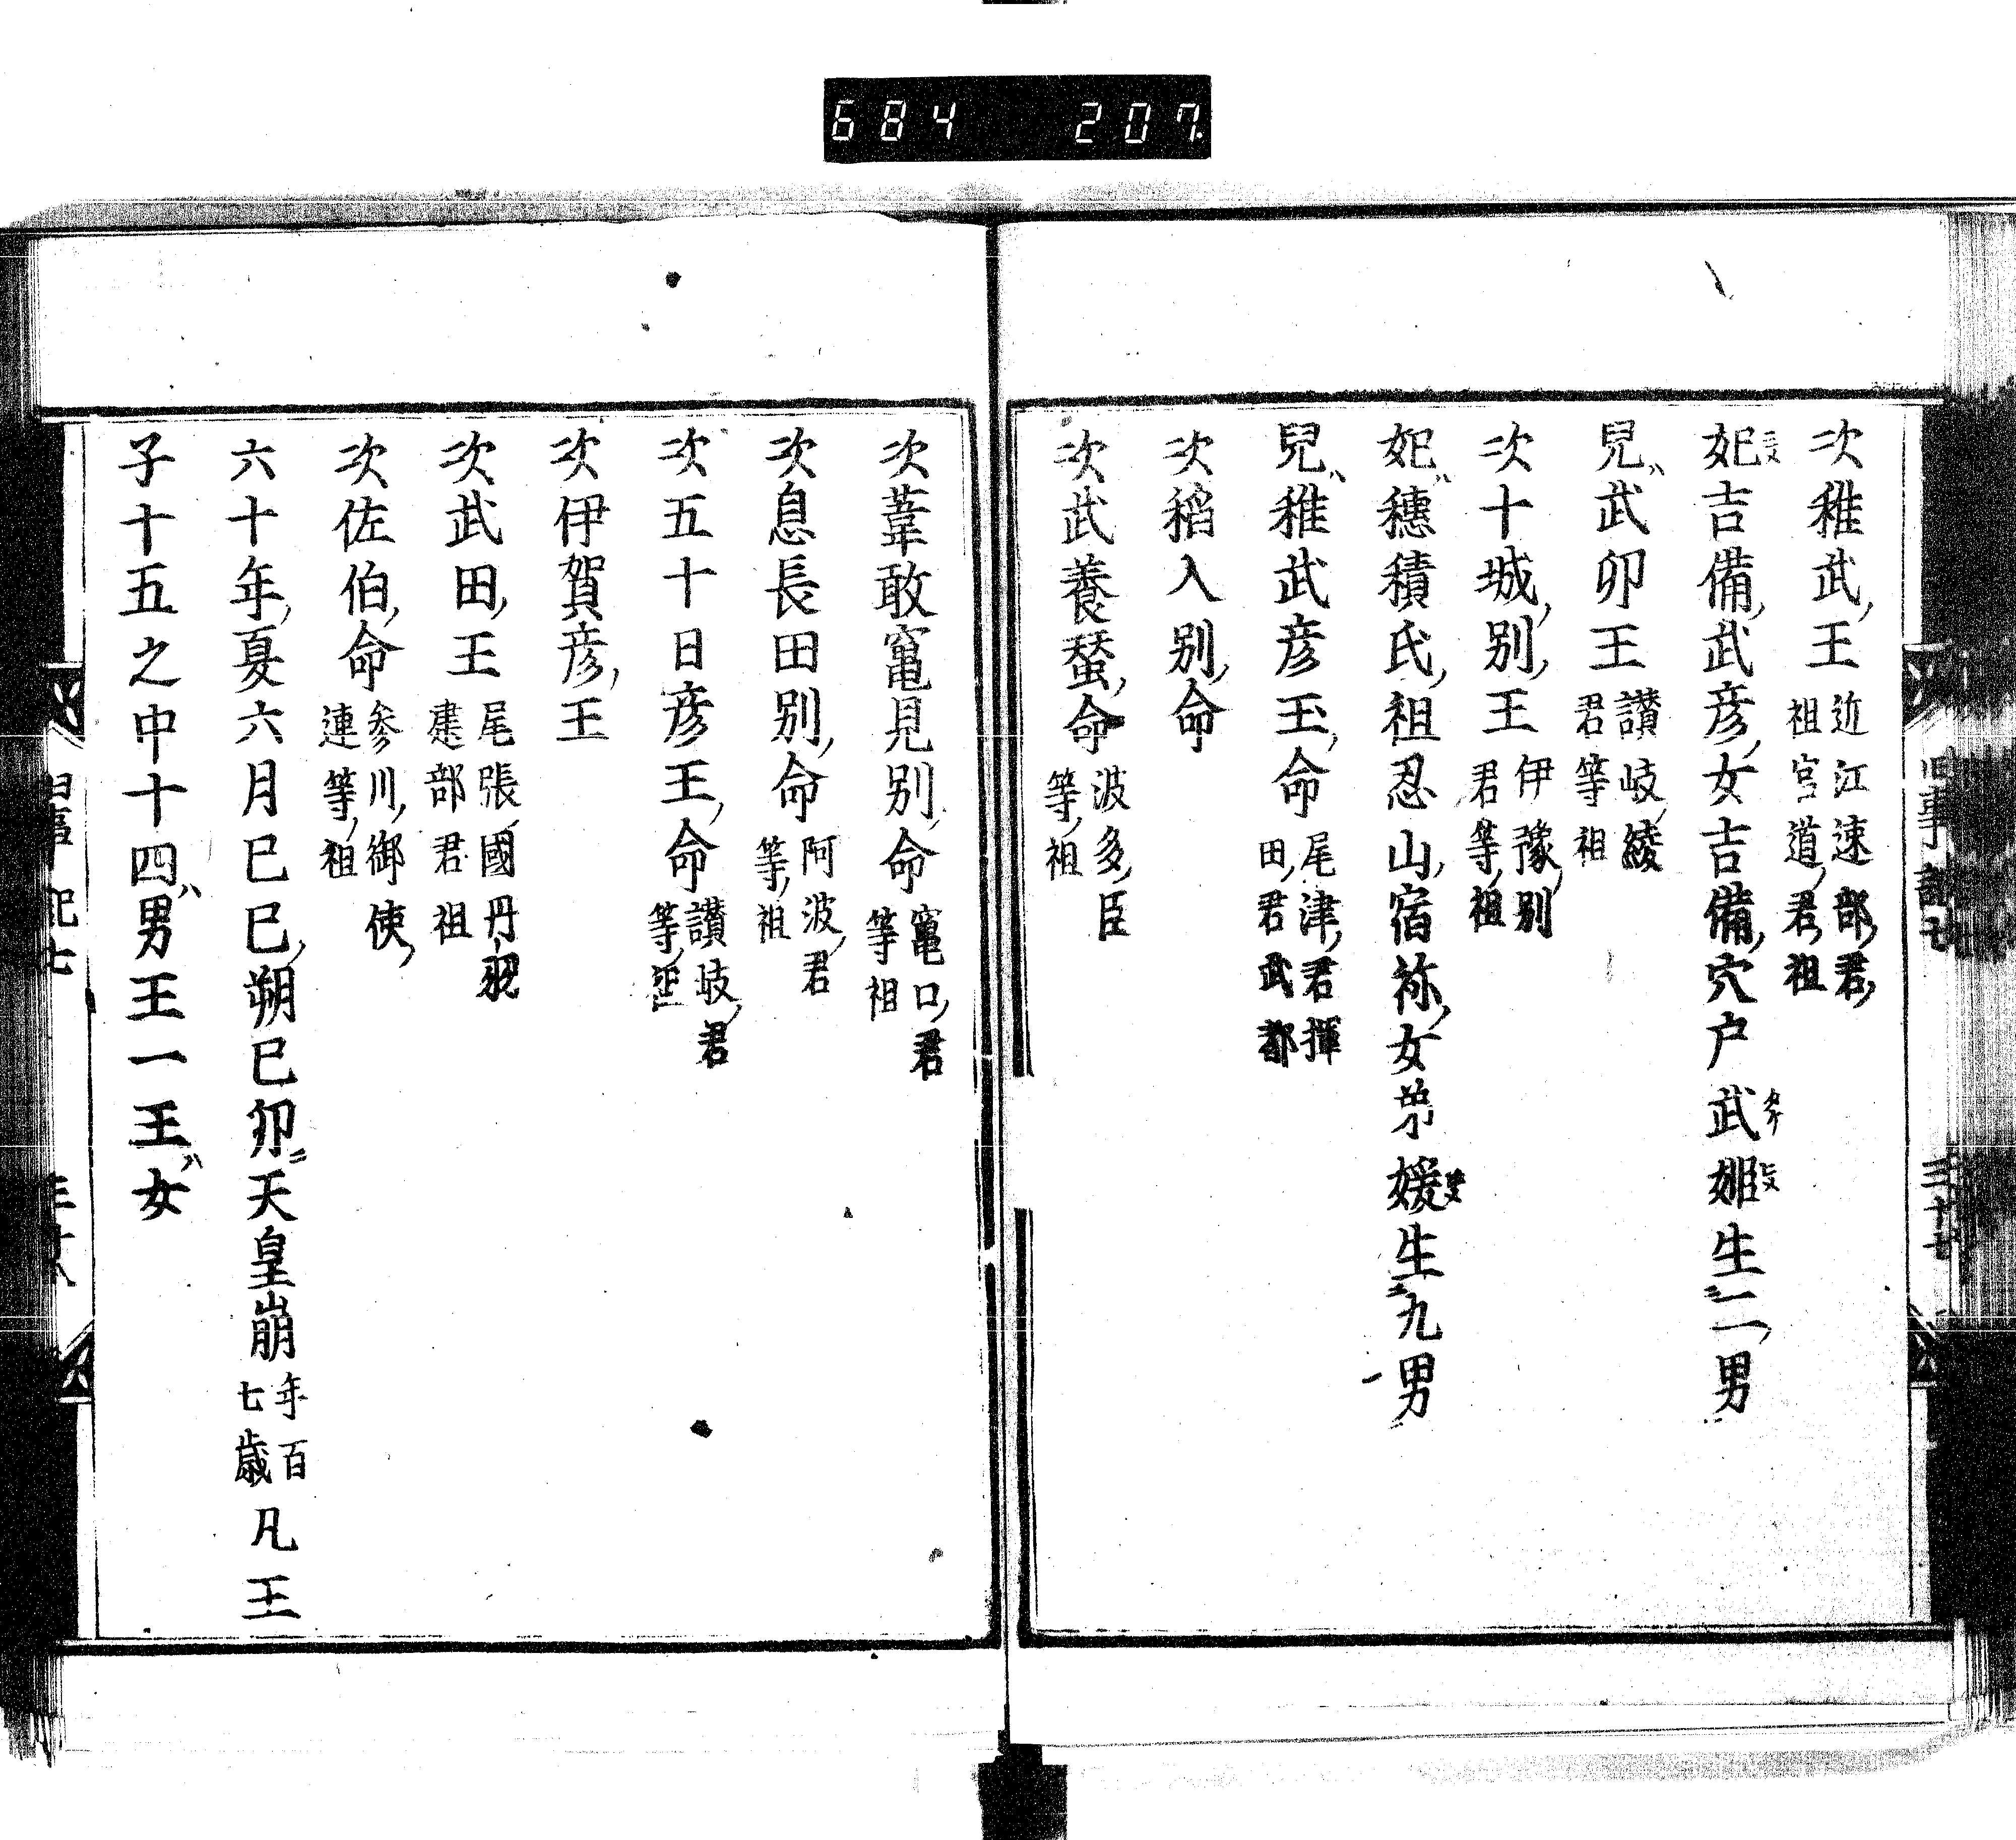 684 207
次稚武王 近江速部君祖宮道君祖
妃吉備武彦女吉備穴戸武姫生二男
兒武卯王 讃岐綾君等祖
次十城別王 伊豫別君等祖
妃穗積氏祖忍山宿祢女弟媛生九男
兒稚武彦王命 尾津君揮田君武部
次稻入別命
次武養蚕命 波多臣等祖
次葦敢竈見別命 竈口君等祖
次息長田別命 阿波君等祖
次五十日彦王命 讃岐君等
次伊賀彦王
次武田王 尾張國丹羽建部君祖
次佐伯命 参川御使連等祖
六十年夏六月巳巳朔巳卯天皇崩 年百七歳 凡王
子十五之中十四男王一王女